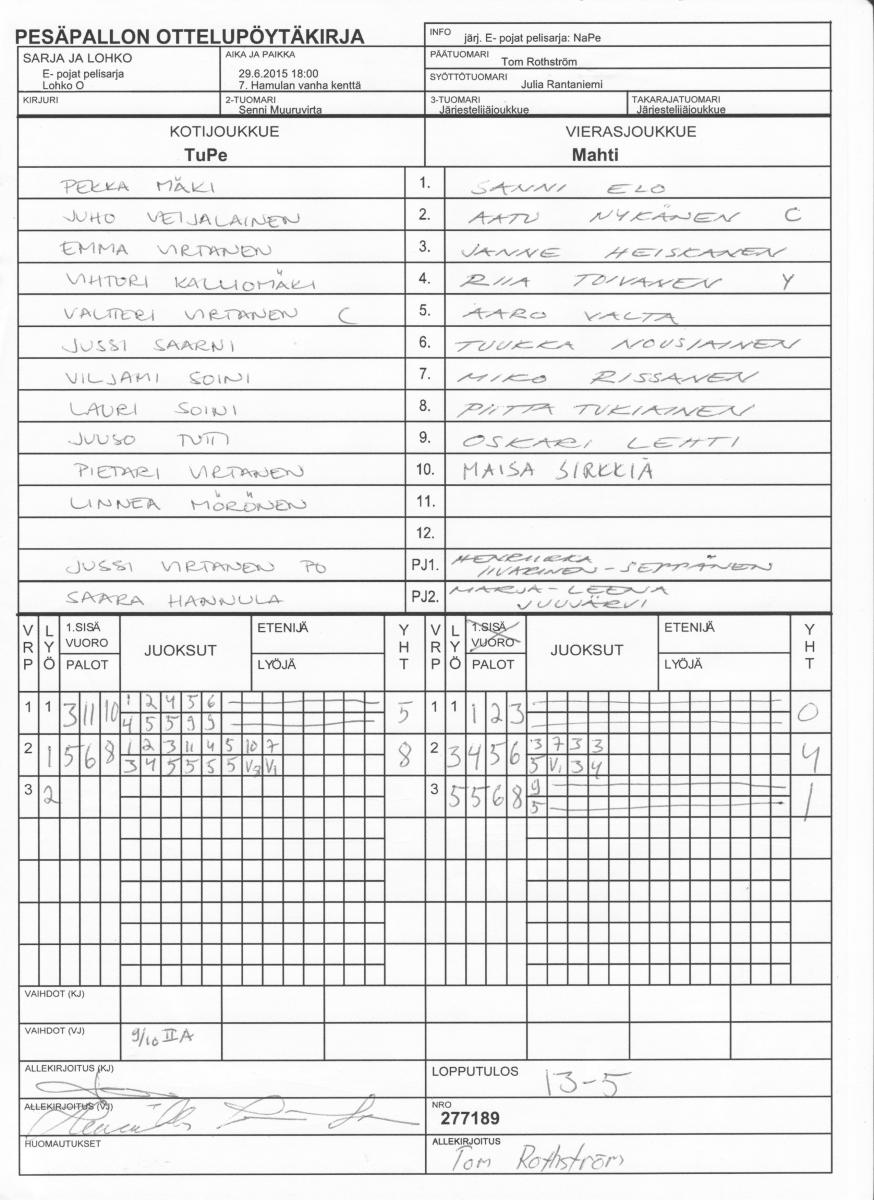 PESÄPALLON OTTELUPÖYTÄKIRJA
INFO järj. E- pojat pelisarja: NaPe
SARJA JA LOHKO
E- pojat pelisarja
Lohko O
AIKA JA PAIKKA
29.6.2015 18:00
7. Hamulan vanha kenttä
PÄÄTUOMARI
Tom Rothström
SYÖTTÖTUOMARI
Julia Rantaniemi
KIRJURI
2-TUOMARI
Senni Muuruvirta
3-TUOMARI
Järjestelijäjoukkue
TAKARAJATUOMARI
Järjestelijäjoukkue
KOTIJOUKKUE VIERASJOUKKUE
TuPe Mahti
PEKKA MÄKI 1. SANNI ELO
JUHO VEIJALAINEN 2. AATU NYKÄNEN C
EMMA VIRTANEN 3. JANNE HEISKANEN
VIHTORI KALLIOMÄKI 4. RIIA TOIVANEN Y
VALTTERI VIRTANEN C 5. AARO VALTA
JUSSI SAARNI 6. TUUKKA NOUSIAINEN
VILJAMI SOINI 7. MIKO RISSANEN
LAURI SOINI 8. PIITTA TUKIAINEN
JUUSO TUTTI 9. OSKARI LEHTI
PIETARI VIRTANEN 10. MAISA SIRKKIÄ
LINNEA MÖRÖNEN 11.
12.
JUSSI VIRTANEN PO PJ1. HENRIIKKA
IIVARINEN-SEPPÄNEN
SAARA HANNULA PJ2. MARJA-LEENA
JUUJÄRVI
VRP LYÖ 1.SISÄ VUORO PALOT JUOKSUT ETENIJÄ LYÖJÄ YHT VRP LYÖ 1.SISÄ VUORO PALOT JUOKSUT ETENIJÄ LYÖJÄ YHT
1 1 3 11 10 1 2 4 5 6 5 1 1 1 2 3 0
4 5 5 9 9
2 1 5 6 8 1 2 3 11 4 5 10 7 8 2 3 4 5 6 3 7 3 3 4
3 4 5 5 5 5 V3 V1 5 V1 3 4
3 2 3 5 5 6 8 9 1
5
VAIHDOT (KJ)
VAIHDOT (VJ) 9/10 II A
ALLEKIRJOITUS (KJ)
LOPPUTULOS 13-5
ALLEKIRJOITUS (VJ)
NRO
277189
HUOMAUTUKSET
ALLEKIRJOITUS
Tom Rothström